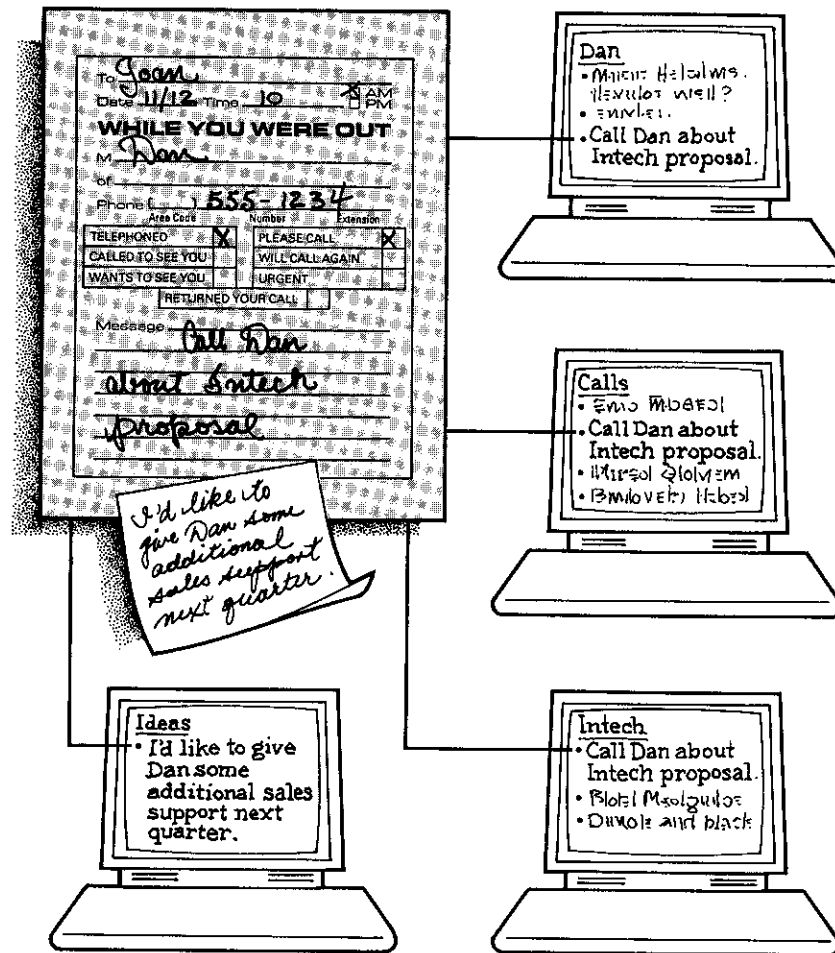 To Joan
Date 11/12 Time 10 X AM
PM
WHILE YOU WERE OUT
M Dan
of
Phone ( ) 555-1234
Area Code Number Extension
TELEPHONED X PLEASE CALL X
CALLED TO SEE YOU WILL CALL AGAIN
WANTS TO SEE YOU URGENT
RETURNED YOUR CALL
Message Call Dan
about Intech
proposal
I'd like to
give Dan some
additional
sales support
next quarter.
Dan
• Call Dan about
Intech proposal.
Calls
• Call Dan about
Intech proposal.
Ideas
• I'd like to give
Dan some
additional sales
support next
quarter.
Intech
• Call Dan about
Intech proposal.
and black